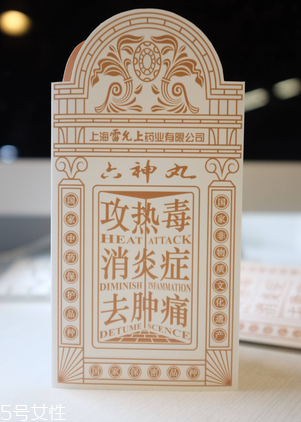 上海雷允上药业有限公司
六神丸
攻热毒
HEAT ATTACK
消炎症
DIMINISH INFAMMATION
去肿痛
DETUMESCENCE
国家中药保护品种
国家非物质文化遗产
国家保密品种
5号女性